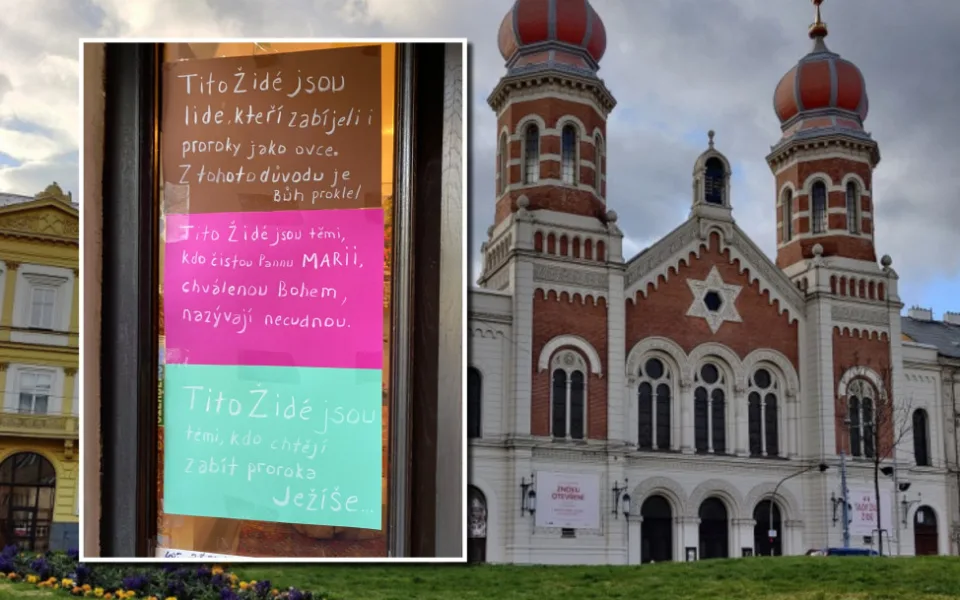 Tito Židé jsou
lidé, kteří zabíjeli i
proroky jako ovce.
Z tohoto důvodu je
Bůh proklel
Tito Židé jsou těmi,
kdo čistou Pannu MARII,
chválenou Bohem,
nazývají necudnou.
Tito Židé jsou
těmi, kdo chtějí
zabít proroka
Ježíše...
ZNOVU
OTEVŘENÉ